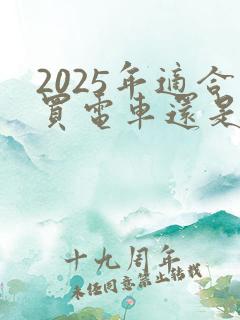 2025年適合
買電車還是
十九周年
未經同意禁止轉載